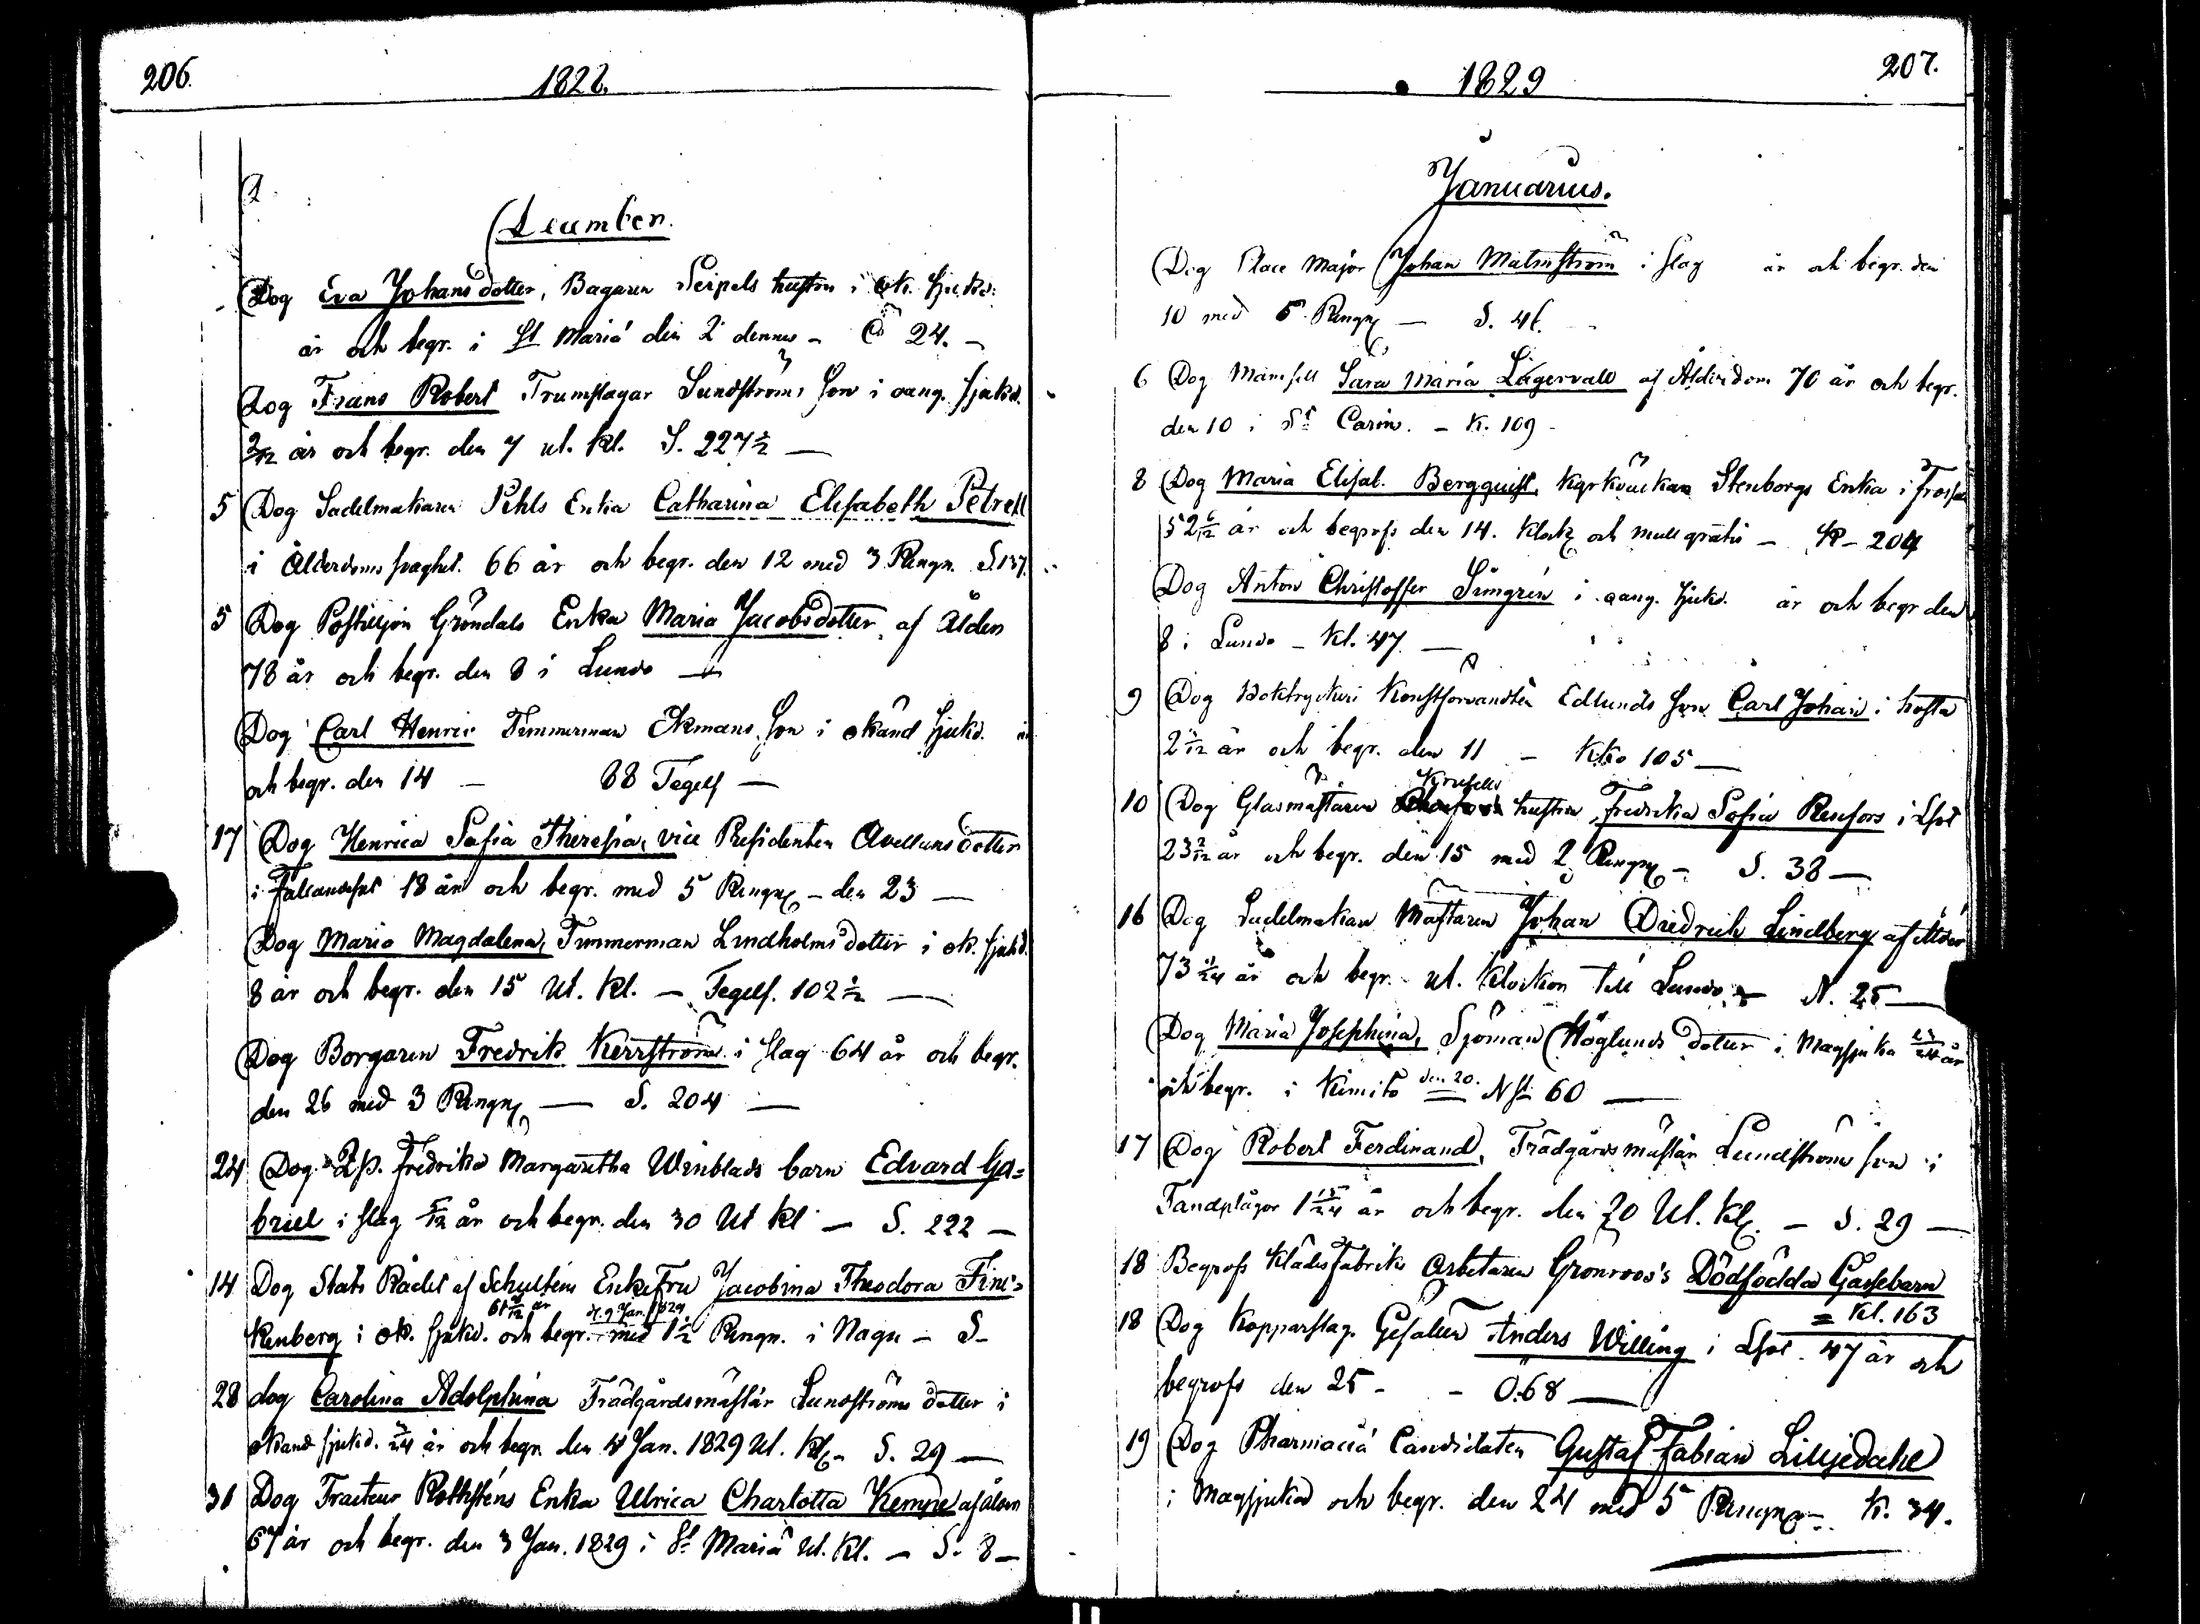 206.
1828.
December.
Dog Eva Johansdotter, Bagaren Seipels hustru i ok. sjukd:
år och begr. i St Mariæ den 2 dennes - C 24. -
Dog Frans Robert Trumslagar Sundströms Son i oang. sjukd.
2/12 år och begr. den 7 ut. Kl. S. 227 1/2 —
5 Dog Sadelmakaren Pihls Enka Catharina Elisabeth Petrell
i Ålderdoms svaghet. 66 år och begr. den 12 med 3 Ringn. S. 137.
5 Dog Postiljon Gröndals Enka Maria Jacobsdotter, af Ålder
78 år och begr. den 8 i Lundo —
Dog Carl Henric Timmerman Ekmans Son i okänd sjukd. år
och begr. den 14 — 88 Tegelf —
17 Dog Henrica Sofia Theresia, vice Presidenten Avellans dotter
i fallandesot 18 år och begr. med 5 Ringn. - den 23 —
Dog Maria Magdalena, Timmerman Lindholms dotter i ok. sjukd.
8 år och begr. den 15 Ut. Kl. — Tegelf. 102 1/2 —
Dog Borgaren Fredrik Kerrström i slag 64 år och begr.
den 26 med 3 Ringn. — S. 204 —
24 Dog Qp. Fredrika Margaretha Winblads barn Edvard Ga=
briel i slag 5/12 år och begr. den 30 Ut Kl — S. 222 —
14 Dog Stats Rådet af Schulténs EnkeFru Jacobina Theodora Finc=
kenberg i ok. sjukd. 61 år och begr. d. 9 Jan. 1829 med 1 1/2 Ringn. i Nagu — S-
28 dog Carolina Adolphina Trädgårdsmästar Lundströms dotter i
okänd sjukd. /24 år och begr. den 4 Jan. 1829 Ut. Kl. - S. 29 —
31 Dog Tracteur Rothsténs Enka Ulrica Charlotta Kempe af ålder
67 år och begr. den 3 Jan. 1829 i St Mariæ Ut. Kl. — S. 8 —
207.
1829
Januarius.
Dog Place Major Johan Malmström i slag år och begr. den
10 med 5 Ringn. — S. 46.
6 Dog Mamsell Sara Maria Lagervall af Ålderdom 70 år och begr.
den 10 i St Carin. - K. 109 -
8 Dog Maria Elisab. Bergquist, Kyrkväktar Stenborgs Enka i Frossa
52 6/12 år och begrofs den 14. Klock och mull gratis — K - 204
Dog Anton Christoffer Limgrén i oang. sjukd. år och begr den
8 i Lundo - Kl. 47 —
9 Dog Boktryckeri Konstförvandten Edlunds Son Carl Johan i hosta
2 /12 år och begr. den 11 - Kko 105 —
10 Dog Glasmästaren Krusells hustru Fredrika Sofia Renfors i Lsot
23 2/12 år och begr. den 15 med 2 Ringn. - S. 38 —
16 Dog Sadelmakar Mästaren Johan Diedrich Lindberg af Ålder
73 /24 år och begr. ut. Klockon till Lundo, — N. 25 —
Dog Maria Josephina, Sjöman Höglunds dotter i Magsjuka 23/24 år
och begr. i Kimito den 20. N St 60 —
17 Dog Robert Ferdinand, Trädgårdsmästar Lundströms son i
Tandplågor 1 15/24 år och begr. den 20 Ut. Kl. — S. 29 —
18 Begrofs Klädesfabriks Arbetaren Grönroos's Dödfödda Gossebarn
= Kl. 163
18 Dog Kopparslag. Gesällen Anders Willing i Lsot 47 år och
begrofs den 25 - - Ö. 68 —
19 Dog Pharmaciæ Candidaten Gustaf Fabian Lilljedahl
i Magsjukd och begr. den 24 med 5 Ringn. - K. 34.